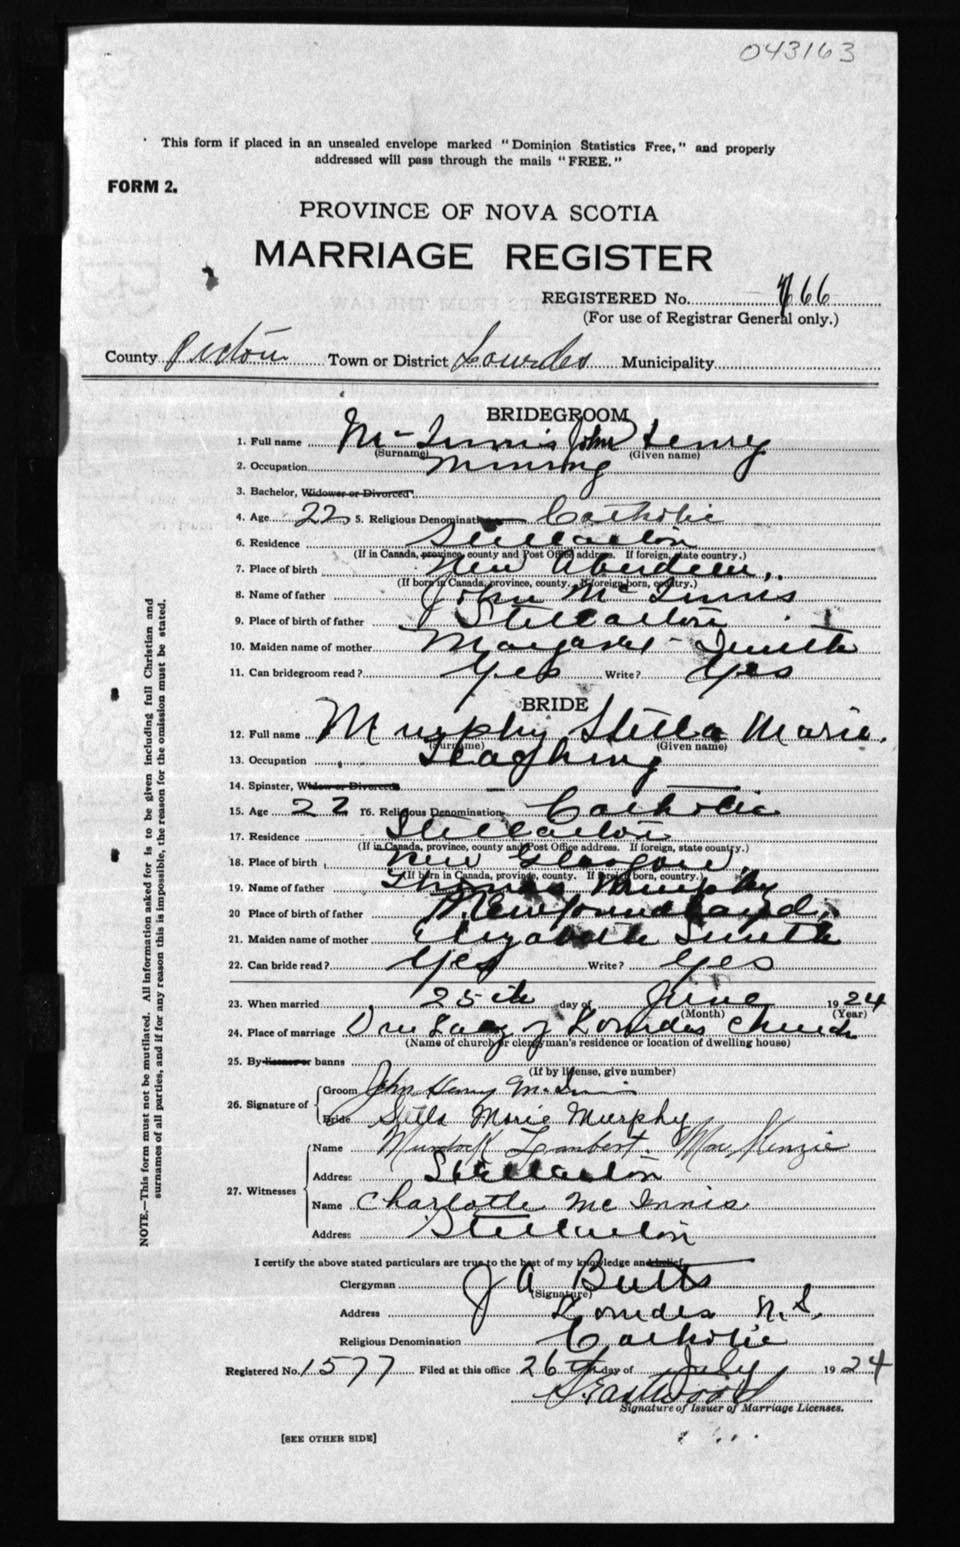 043163
This form if placed in an unsealed envelope marked "Dominion Statistics Free," and properly
addressed will pass through the mails "FREE."
FORM 2.
PROVINCE OF NOVA SCOTIA
MARRIAGE REGISTER
REGISTERED No. 766
(For use of Registrar General only.)
County Pictou Town or District Lourdes Municipality
BRIDEGROOM
1. Full name Mc Innis John Henry
(Surname) (Given name)
2. Occupation Mining
3. Bachelor, Widower or Divorced
4. Age 22 5. Religious Denomination Catholic
6. Residence Stellarton
(If in Canada, province, county and Post Office address. If foreign, state country.)
7. Place of birth New Aberdeen,
(If born in Canada, province, county. If foreign born, country.)
8. Name of father John Mc Innis
9. Place of birth of father Stellarton
10. Maiden name of mother Margaret Smith
11. Can bridegroom read? Yes Write? Yes
BRIDE
12. Full name Murphy Stella Marie.
(Surname) (Given name)
13. Occupation Teaching
14. Spinster, Widow or Divorced
15. Age 22 16. Religious Denomination Catholic
17. Residence Stellarton
(If in Canada, province, county and Post Office address. If foreign, state country.)
18. Place of birth New Glasgow,
(If born in Canada, province, county. If foreign born, country.)
19. Name of father Thomas Murphy
20 Place of birth of father Newfoundland,
21. Maiden name of mother Elizabeth Smith
22. Can bride read? Yes Write? Yes
23. When married 25th day of June 1924
(Month) (Year)
24. Place of marriage Our Lady of Lourdes Church
(Name of church or clergyman's residence or location of dwelling house)
25. By license or banns
(If by license, give number)
26. Signature of Groom John Henry McInnis
Bride Stella Marie Murphy
27. Witnesses Name Murdock Lambert MacKenzie
Address Stellarton
Name Charlotte Mc Innis
Address Stellarton
I certify the above stated particulars are true to the best of my knowledge and belief.
Clergyman J A Butts
(Signature)
Address Lourdes N.S.
Religious Denomination Catholic
Registered No. 1577 Filed at this office 26th day of July 1924
Eastwood
Signature of Issuer of Marriage Licenses.
[SEE OTHER SIDE]
NOTE.—This form must not be mutilated. All information asked for is to be given including full Christian and
surnames of all parties, and if for any reason this is impossible, the reason for the omission must be stated.